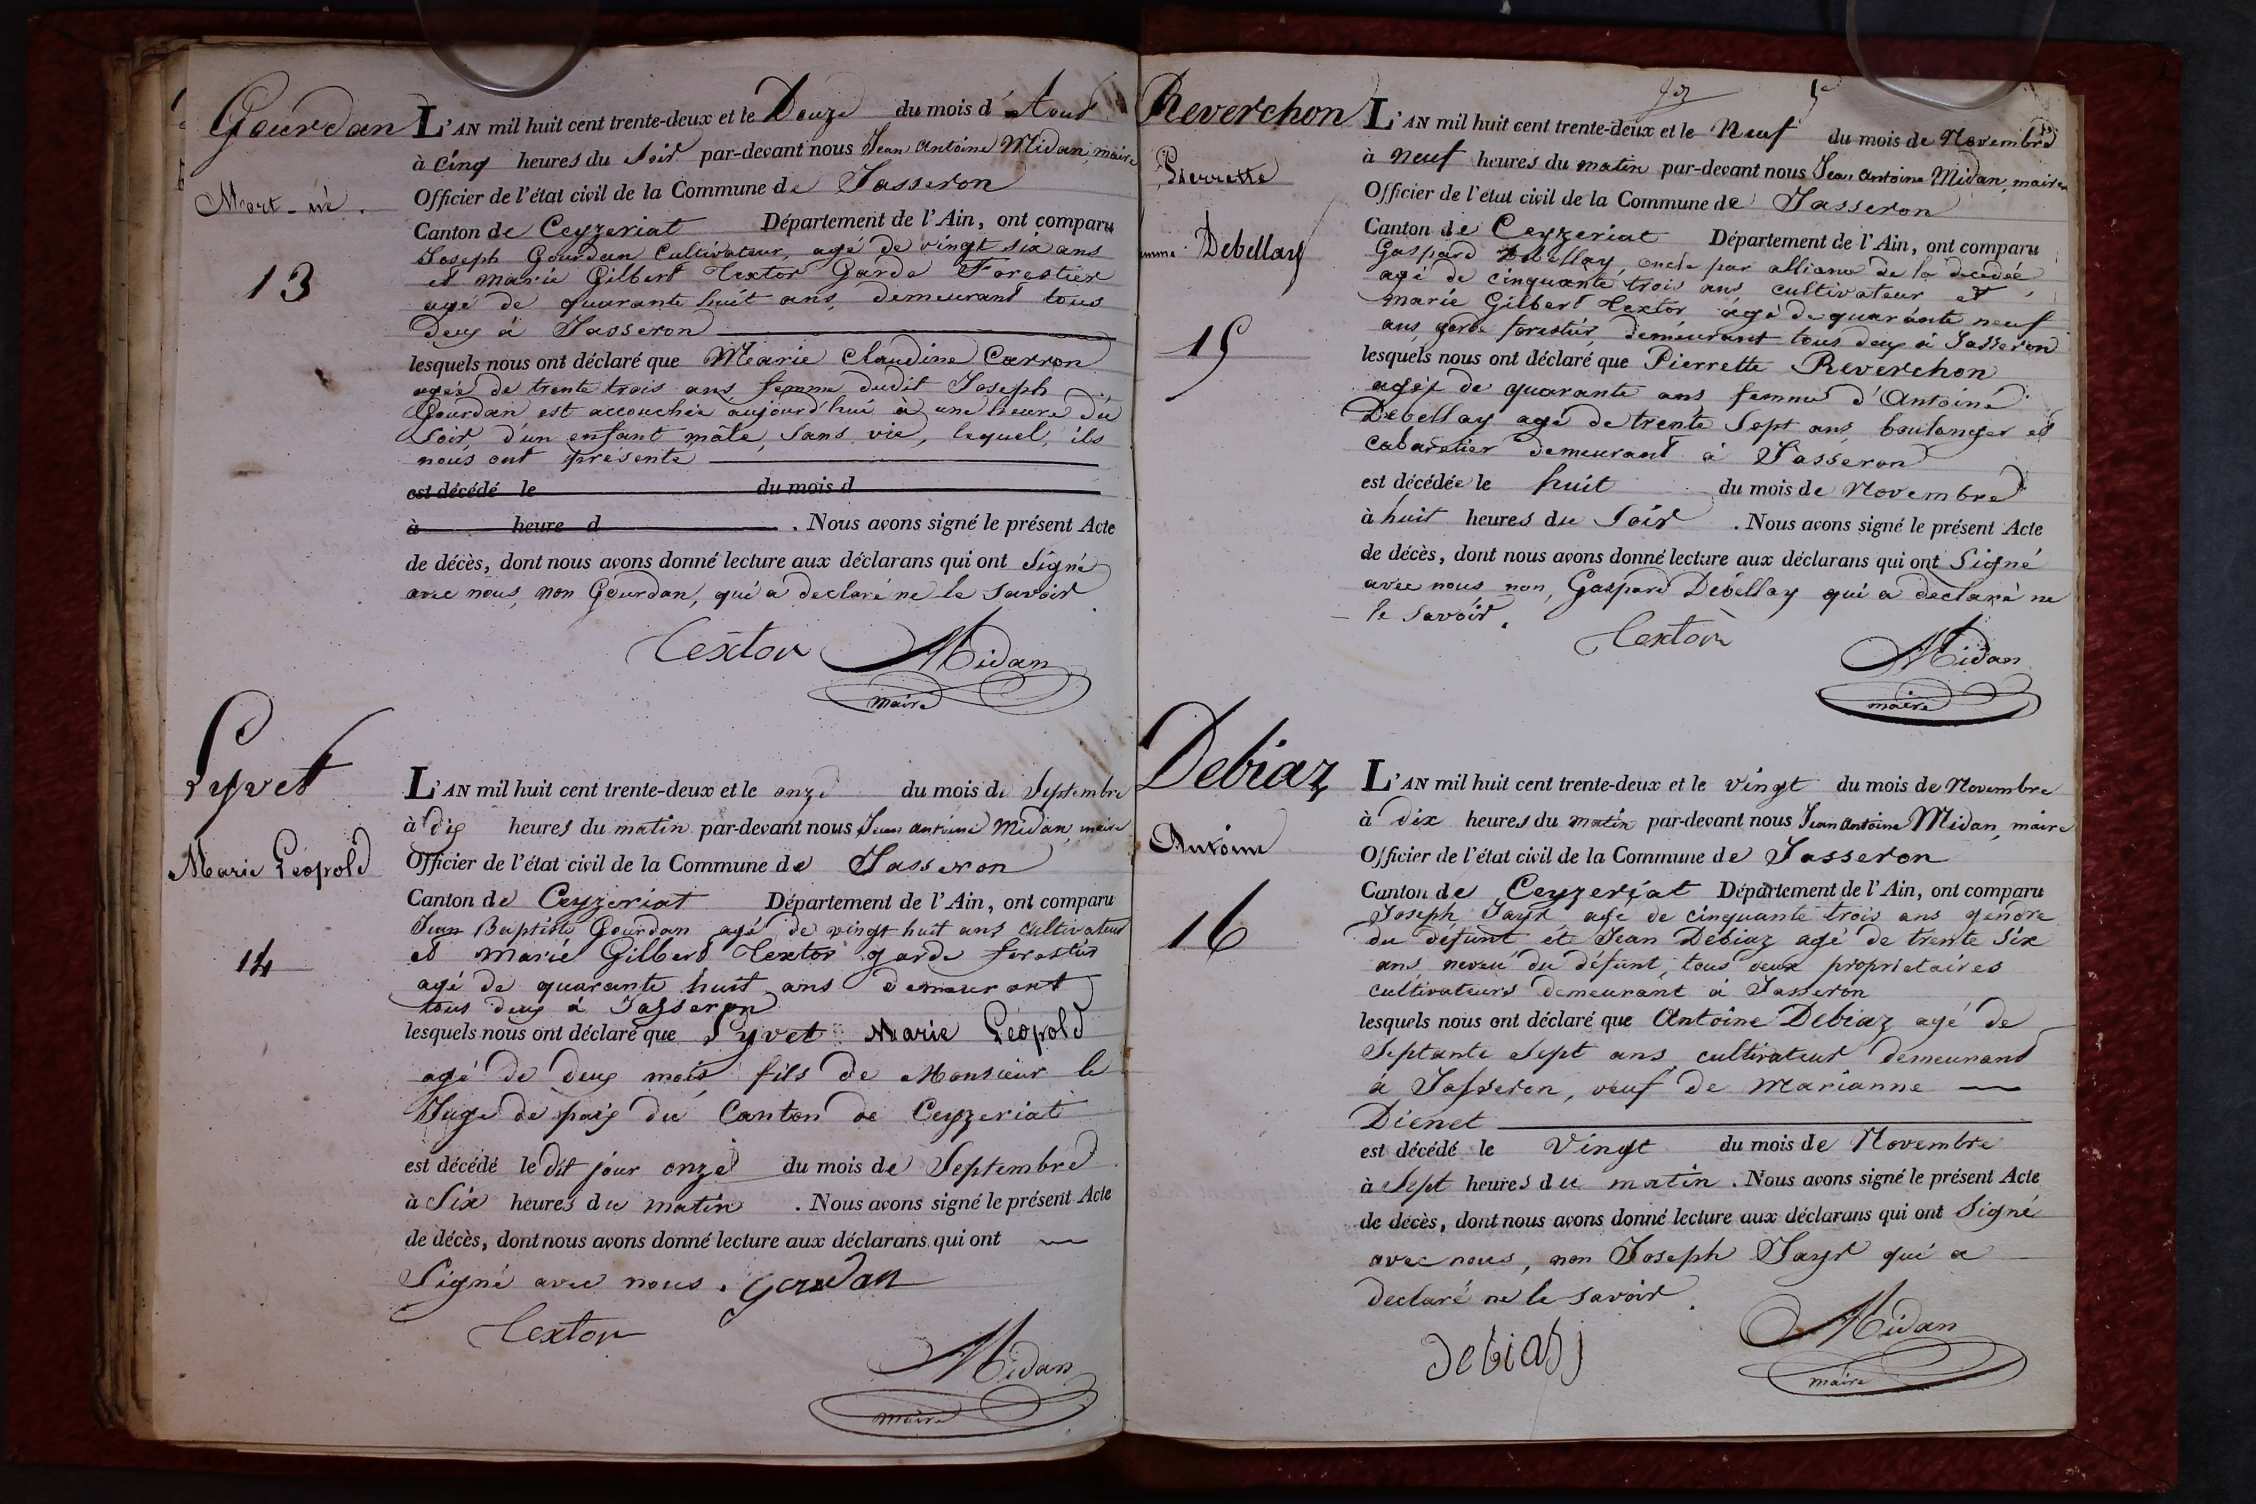 Gourdan
Mort-né.
13
L'AN mil huit cent trente-deux et le Douze du mois d'Aout
à cinq heures du soir par-devant nous Jean Antoine Midan, maire
Officier de l'état civil de la Commune de Jasseron
Canton de Ceyzeriat Département de l'Ain, ont comparu
Joseph Gourdan Cultivateur, agé de vingt six ans
et marie Gilbert Textor Garde Forestier
agé de quarante huit ans, demeurant tous
deux à Jasseron
lesquels nous ont déclaré que Marie Claudine Carron
agée de trente trois ans femme dudit Joseph
Gourdan est accouchée aujourd'hui à une heure du
soir, d'un enfant mâle, sans vie, lequel, ils
nous ont présenté
est décédé le du mois d
à heure d . Nous avons signé le présent Acte
de décès, dont nous avons donné lecture aux déclarans qui ont signé
avec nous, non Gourdan, qui a declaré ne le savoir
Textor Midan
maire
Pyvet
Marie Léopold
14
L'AN mil huit cent trente-deux et le onze du mois de Septembre
à dix heures du matin par-devant nous Jean antoine Midan, maire
Officier de l'état civil de la Commune de Jasseron
Canton de Ceyzeriat Département de l'Ain, ont comparu
Jean Baptiste Gourdan agé de vingt huit ans cultivateur
et marie Gilbert Textor garde forestier
agé de quarante huit ans demeurant
tous deux à Jasseron
lesquels nous ont déclaré que Pyvet Marie Léopold
agé de deux mois, fils de Monsieur le
Juge de paix du Canton de Ceyzeriat
est décédé le dit jour onze du mois de Septembre
à Six heures du matin . Nous avons signé le présent Acte
de décès, dont nous avons donné lecture aux déclarans qui ont
Signé avec nous. gourdan
Textor
Midan
maire
Reverchon
Pierrette
femme Debellay
15
L'AN mil huit cent trente-deux et le Neuf du mois de Novembre
à Neuf heures du matin par-devant nous Jean Antoine Midan, maire
Officier de l'état civil de la Commune de Jasseron
Canton de Ceyzeriat Département de l'Ain, ont comparu
Gaspard Debellay, oncle par alliance de la décédée,
agé de cinquante trois ans cultivateur et
marie Gilbert Textor agé de quarante neuf
ans, garde forestier, demeurant tous deux à Jasseron
lesquels nous ont déclaré que Pierrette Reverchon
agée de quarante ans femme d'Antoine
Debellay agé de trente Sept ans, boulanger et
cabaretier demeurant à Jasseron
est décédée le huit du mois de Novembre
à huit heures du Soir . Nous avons signé le présent Acte
de décès, dont nous avons donné lecture aux déclarans qui ont Signé
avec nous non, Gaspard Debellay qui a declaré ne
le savoir.
Textor
Midan
maire
Debiaz
Antoine
16
L'AN mil huit cent trente-deux et le vingt du mois de Novembre
à dix heures du matin par-devant nous Jean Antoine Midan, maire
Officier de l'état civil de la Commune de Jasseron
Canton de Ceyzeriat Département de l'Ain, ont comparu
Joseph Jayr agé de cinquante trois ans gendre
du défunt et Jean Debiaz agé de trente Six
ans, neveu du défunt, tous deux propriétaires
cultivateurs demeurant à Jasseron
lesquels nous ont déclaré que Antoine Debiaz agé de
Septante Sept ans, cultivateur demeurant
à Jasseron, veuf de Marianne
Dienet
est décédé le Vingt du mois de Novembre
à Sept heures du matin . Nous avons signé le présent Acte
de décès, dont nous avons donné lecture aux déclarans qui ont Signé
avec nous, non Joseph Jayr qui a
declaré ne le savoir.
Midan
maire